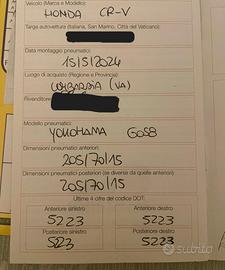 Veicolo (Marca e Modello):
HONDA CR-V
Targa autovettura (Italiana, San Marino, Città del Vaticano):
Data montaggio pneumatici:
15/5/2024
Luogo di acquisto (Regione e Provincia):
LOMBARDIA (VA)
Rivenditore
Modello pneumatici:
YOKOHAMA G058
Dimensioni pneumatici anteriori:
205/70/15
Dimensioni pneumatici posteriori (se diverse da quelle anteriori)
205/70/15
Ultime 4 cifre del codice DOT:
Anteriore sinistro Anteriore destro
5223 5223
Posteriore sinistro Posteriore destro
5223 5223
subito